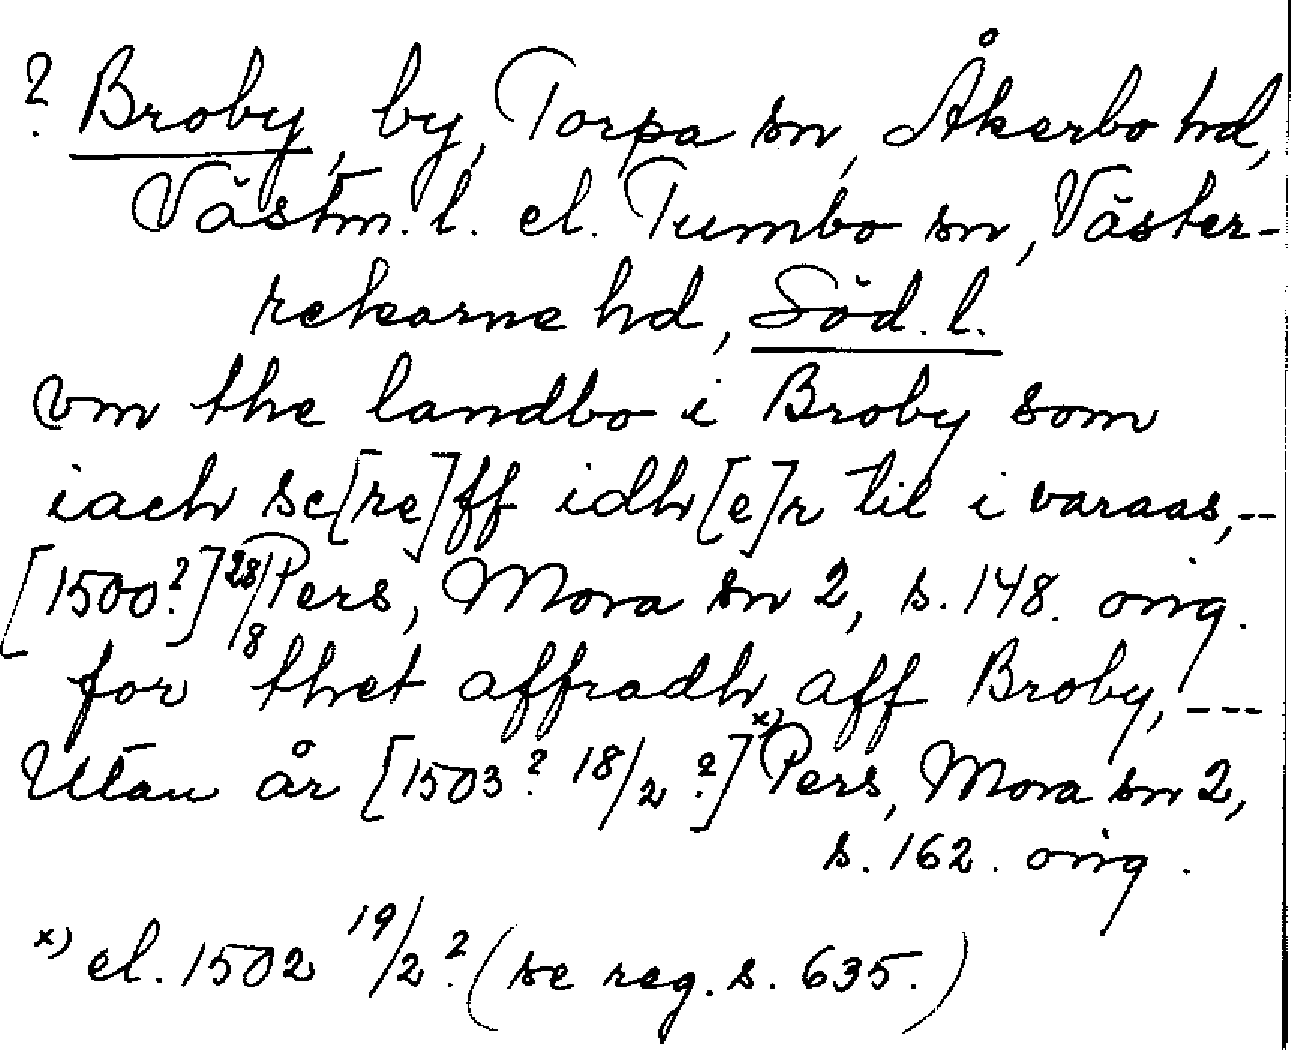 ? Broby, by, Torpa sn, Åkerbo hd,
Västm. l. el. Tumbo sn, Väster-
rekarne hd, Söd. l.
vm the landbo i Broby som
iach sc[re]ff idh[e]r til i varaas, --
[1500?] 28/8 Pers, Mora sn 2, s. 148. orig.
for thet affradh aff Broby, ---
Utan år [1503? 18/2 ?] x) Pers, Mora sn 2,
s. 162. orig.
x) el. 1502 19/2 ? (se reg. s. 635.)